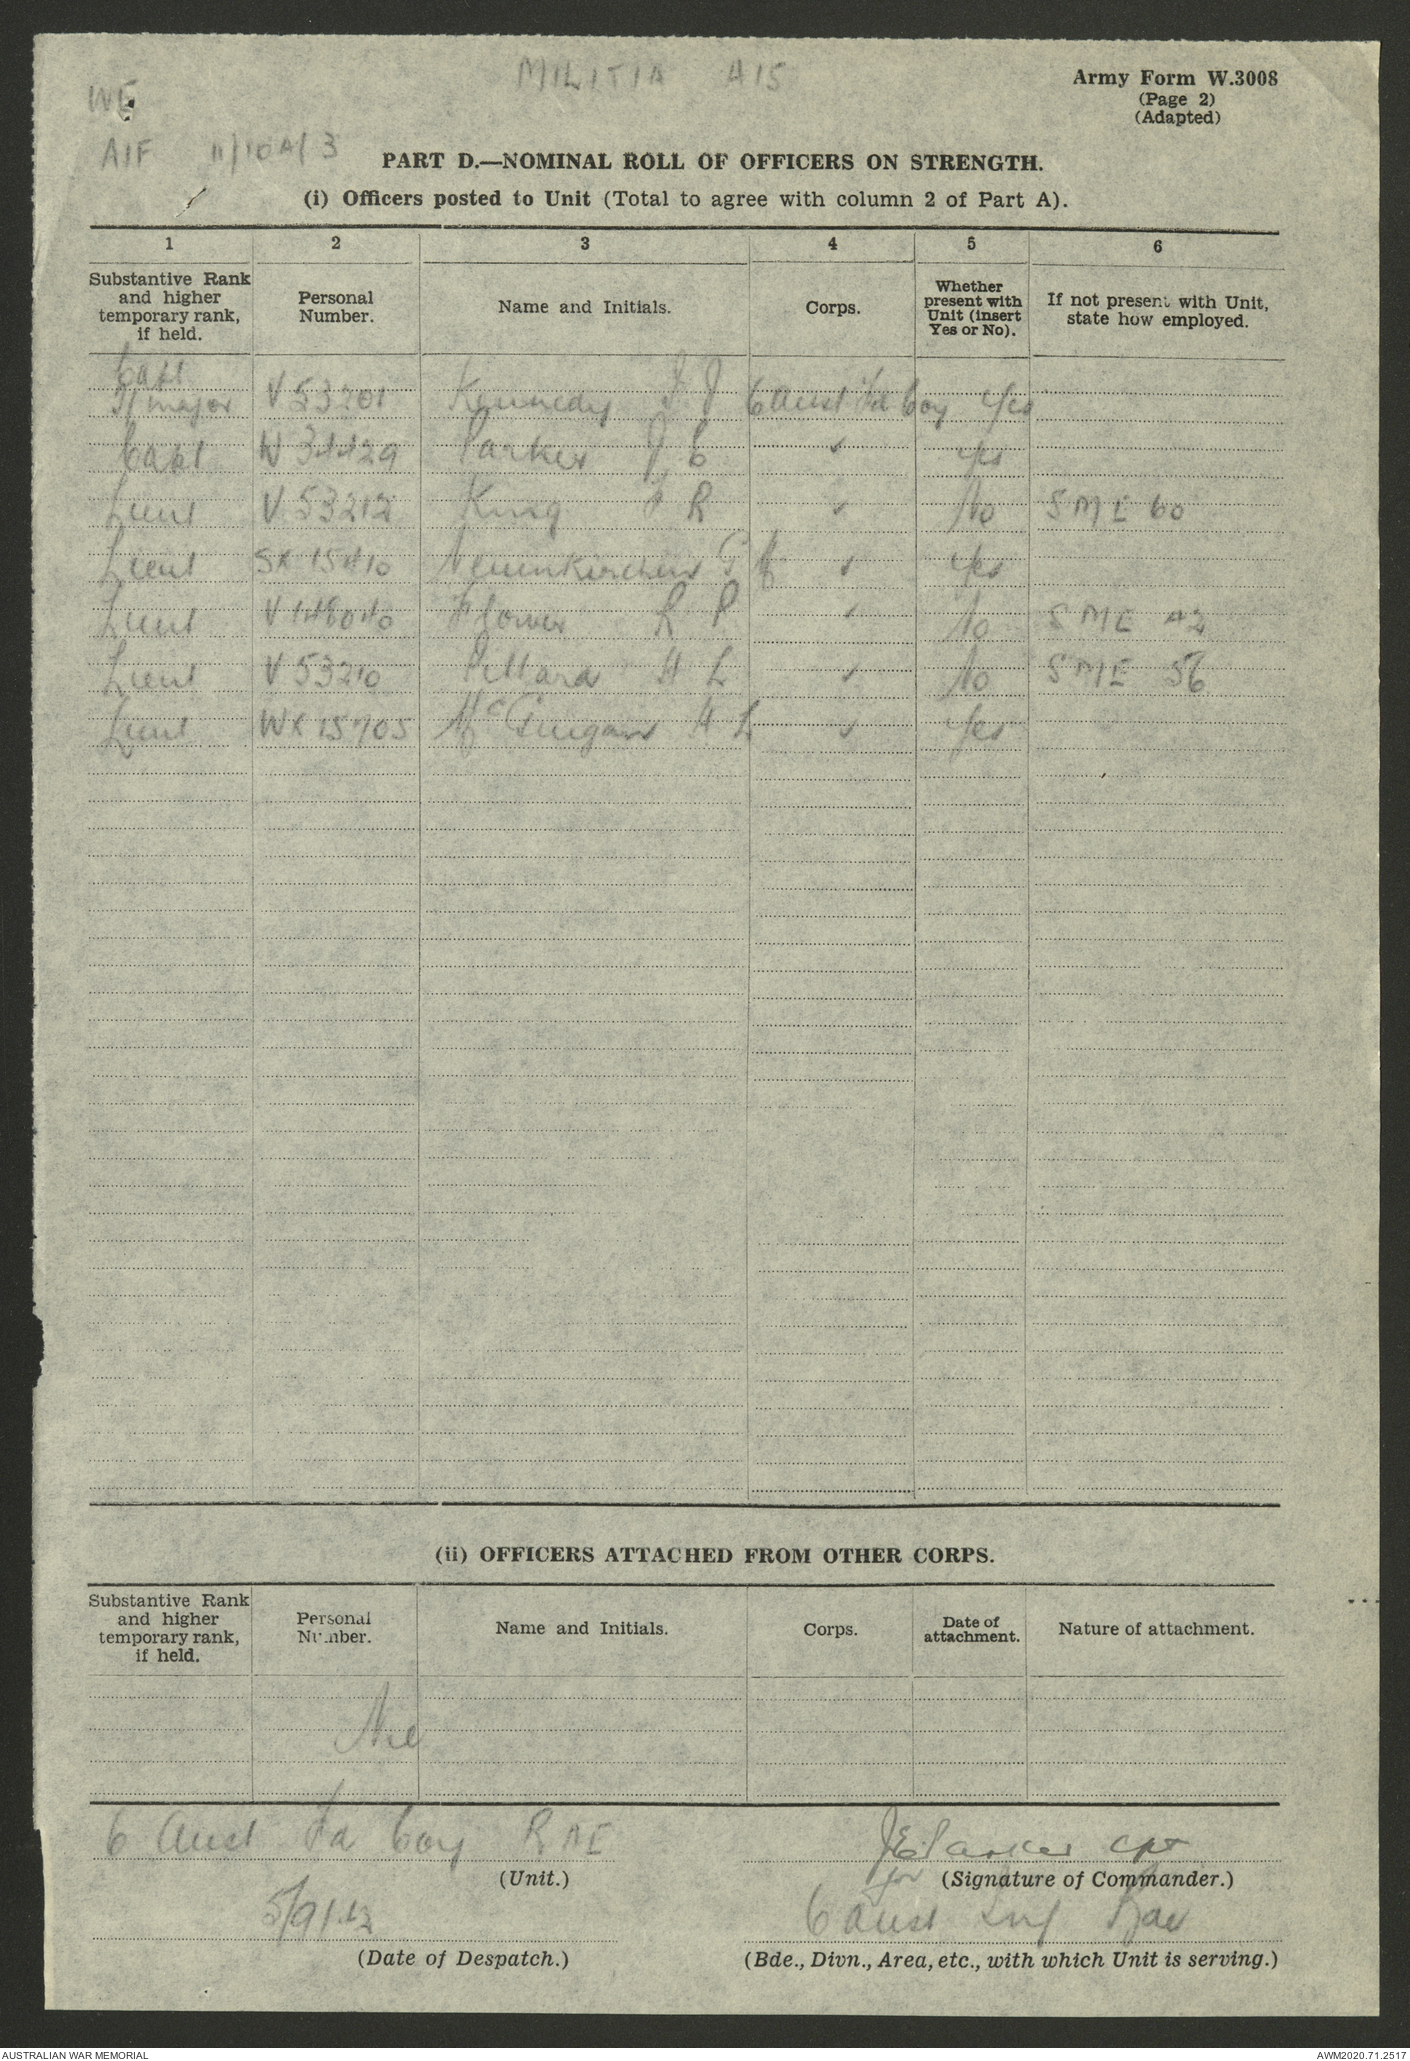 MILITIA A15
Army Form W.3008
(Page 2)
(Adapted)
WE
AIF 11/10A/3
PART D.—NOMINAL ROLL OF OFFICERS ON STRENGTH.
(i) Officers posted to Unit (Total to agree with column 2 of Part A).
1 2 3 4 5 6
Substantive Rank and higher temporary rank, if held. Personal Number. Name and Initials. Corps. Whether present with Unit (insert Yes or No). If not present with Unit, state how employed.
Capt
T/Major V 53201 Kennedy J J 6 Aust Fd Coy Yes
Capt 34429 Parker J E ✓ Yes
Lieut V 53212 King R ✓ No SME 60
Lieut SX 15410 Neuenkirchen G M ✓ Yes
Lieut V 148040 Flower L P ✓ No SME 42
Lieut V 53210 Pettard H L ✓ No SME 56
Lieut WX 15705 McGuigan H L ✓ Yes
(ii) OFFICERS ATTACHED FROM OTHER CORPS.
Substantive Rank and higher temporary rank, if held. Personal Number. Name and Initials. Corps. Date of attachment. Nature of attachment.
Nil
6 Aust Fd Coy RAE
(Unit.)
JEParker Cpt
for (Signature of Commander.)
5/9/42
(Date of Despatch.)
6 Aust
(Bde., Divn., Area, etc., with which Unit is serving.)
AUSTRALIAN WAR MEMORIAL
AWM2020.71.2517